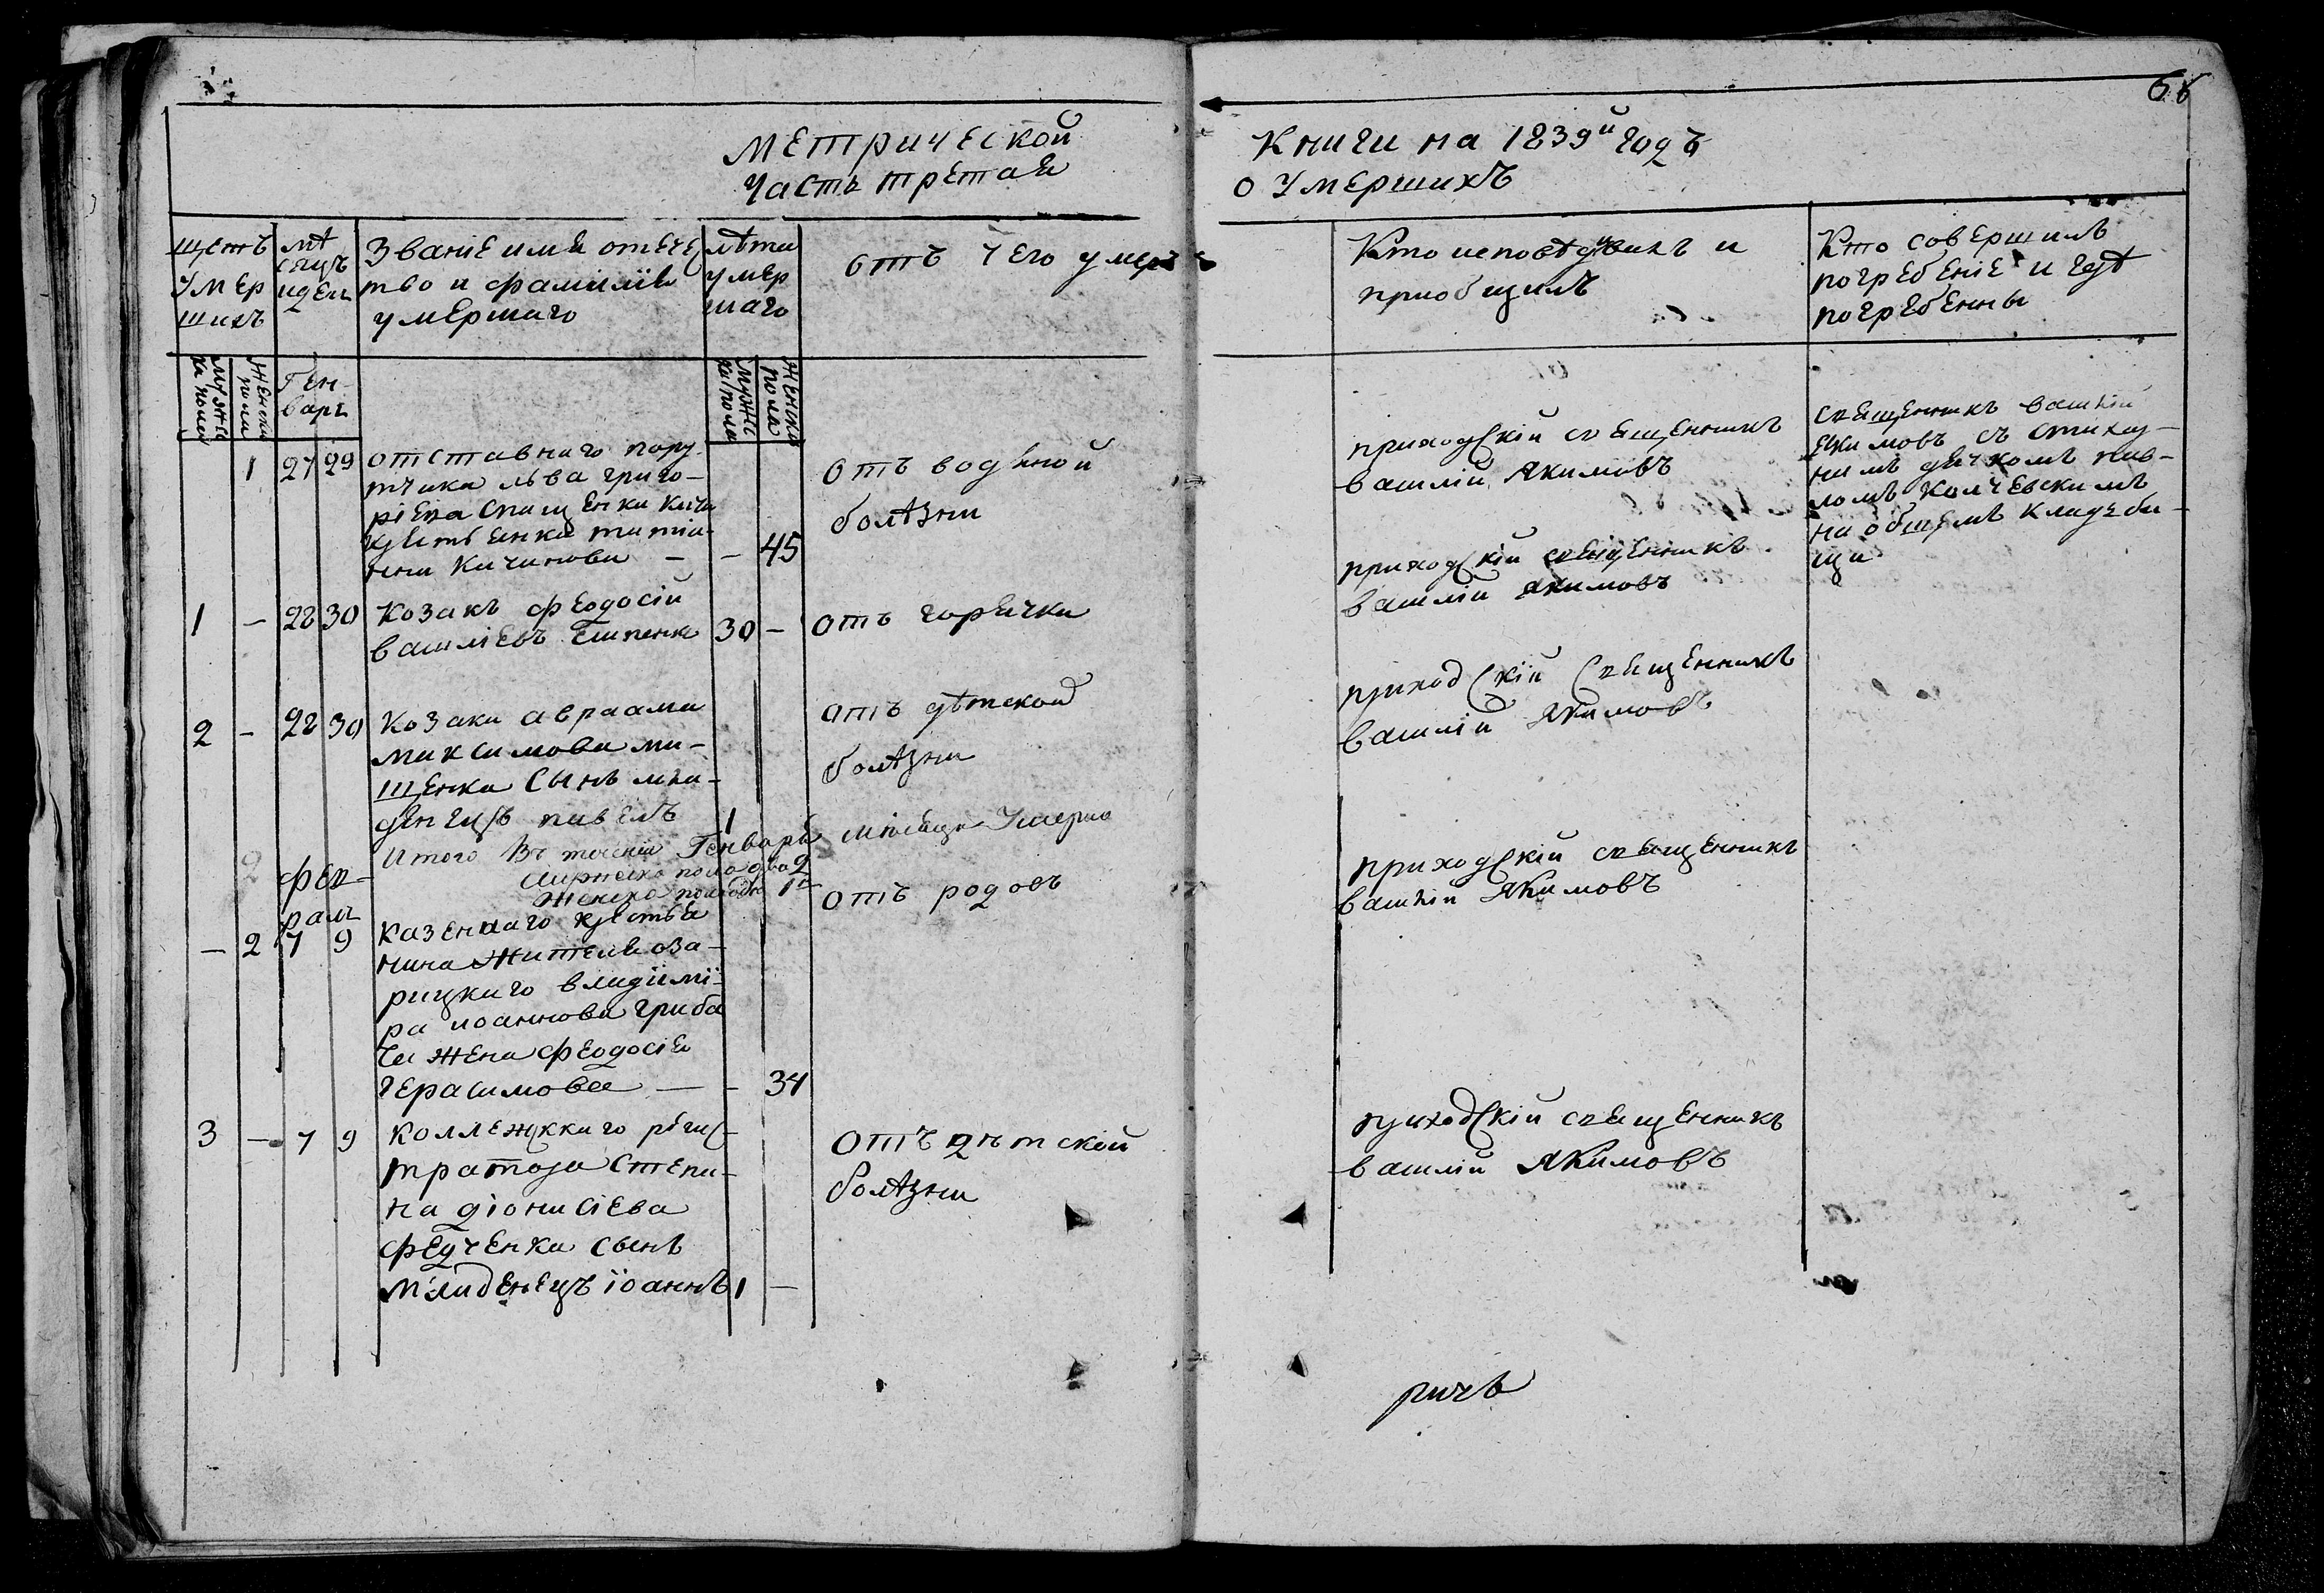 68
Метрической
часть третая
Книги на 1839й годъ
о умершихъ
щетъ
умер
шихъ
мѣ
сяцъ
и ден
Званіе имя отечес
тво и фамилія
умершаго
лѣта
умер
шаго
отъ чего умеръ
Кто исповѣдывалъ и
приобщилъ
Кто совершилъ
погребеніе и гдѣ
погребенны
мужс
ка пола
женска
пола
Ген-
варь
мужс
ка пола
женска
пола
1 27 29 отставнаго пору-
тчика льва григо-
ріева
крестьянка татиа-
на — — 45
отъ водяной
болѣзни
приходскій священникъ
василій Якимовъ
священникъ василій
екимовъ съ стихар-
нимъ дячкомъ пав-
ломъ колчевскимъ
на общемъ кладби-
щи
1 — 28 30 Козакъ феодосій
василіевъ 30 —
отъ горячки
приходскій священникъ
василій якимовъ
2 — 28 30 Козака авраама
максимова ми-
щенка сынъ мла-
денецъ павелъ 1
отъ дѣтской
болѣзни
приходскій священникъ
василій Якимовъ
Итого Въ теченіи Генваря месяца Умерло
Мужеска пола два 2
Женска пола одна 1
фев-
раль
— 2 7 9 казеннаго крестья
нина жителя оза-
рицкаго владими-
ра иоаннова гриба
ча жена феодосія
герасимова — — 34
отъ родовъ
приходскій священникъ
василій Якимовъ
3 — 7 9 коллежскаго регис-
тратора степа-
на діонисіева
федченка сынъ
младенецъ іоаннъ 1 —
отъ дѣтской
болѣзни
приходскій священникъ
василій Якимовъ
ричъ